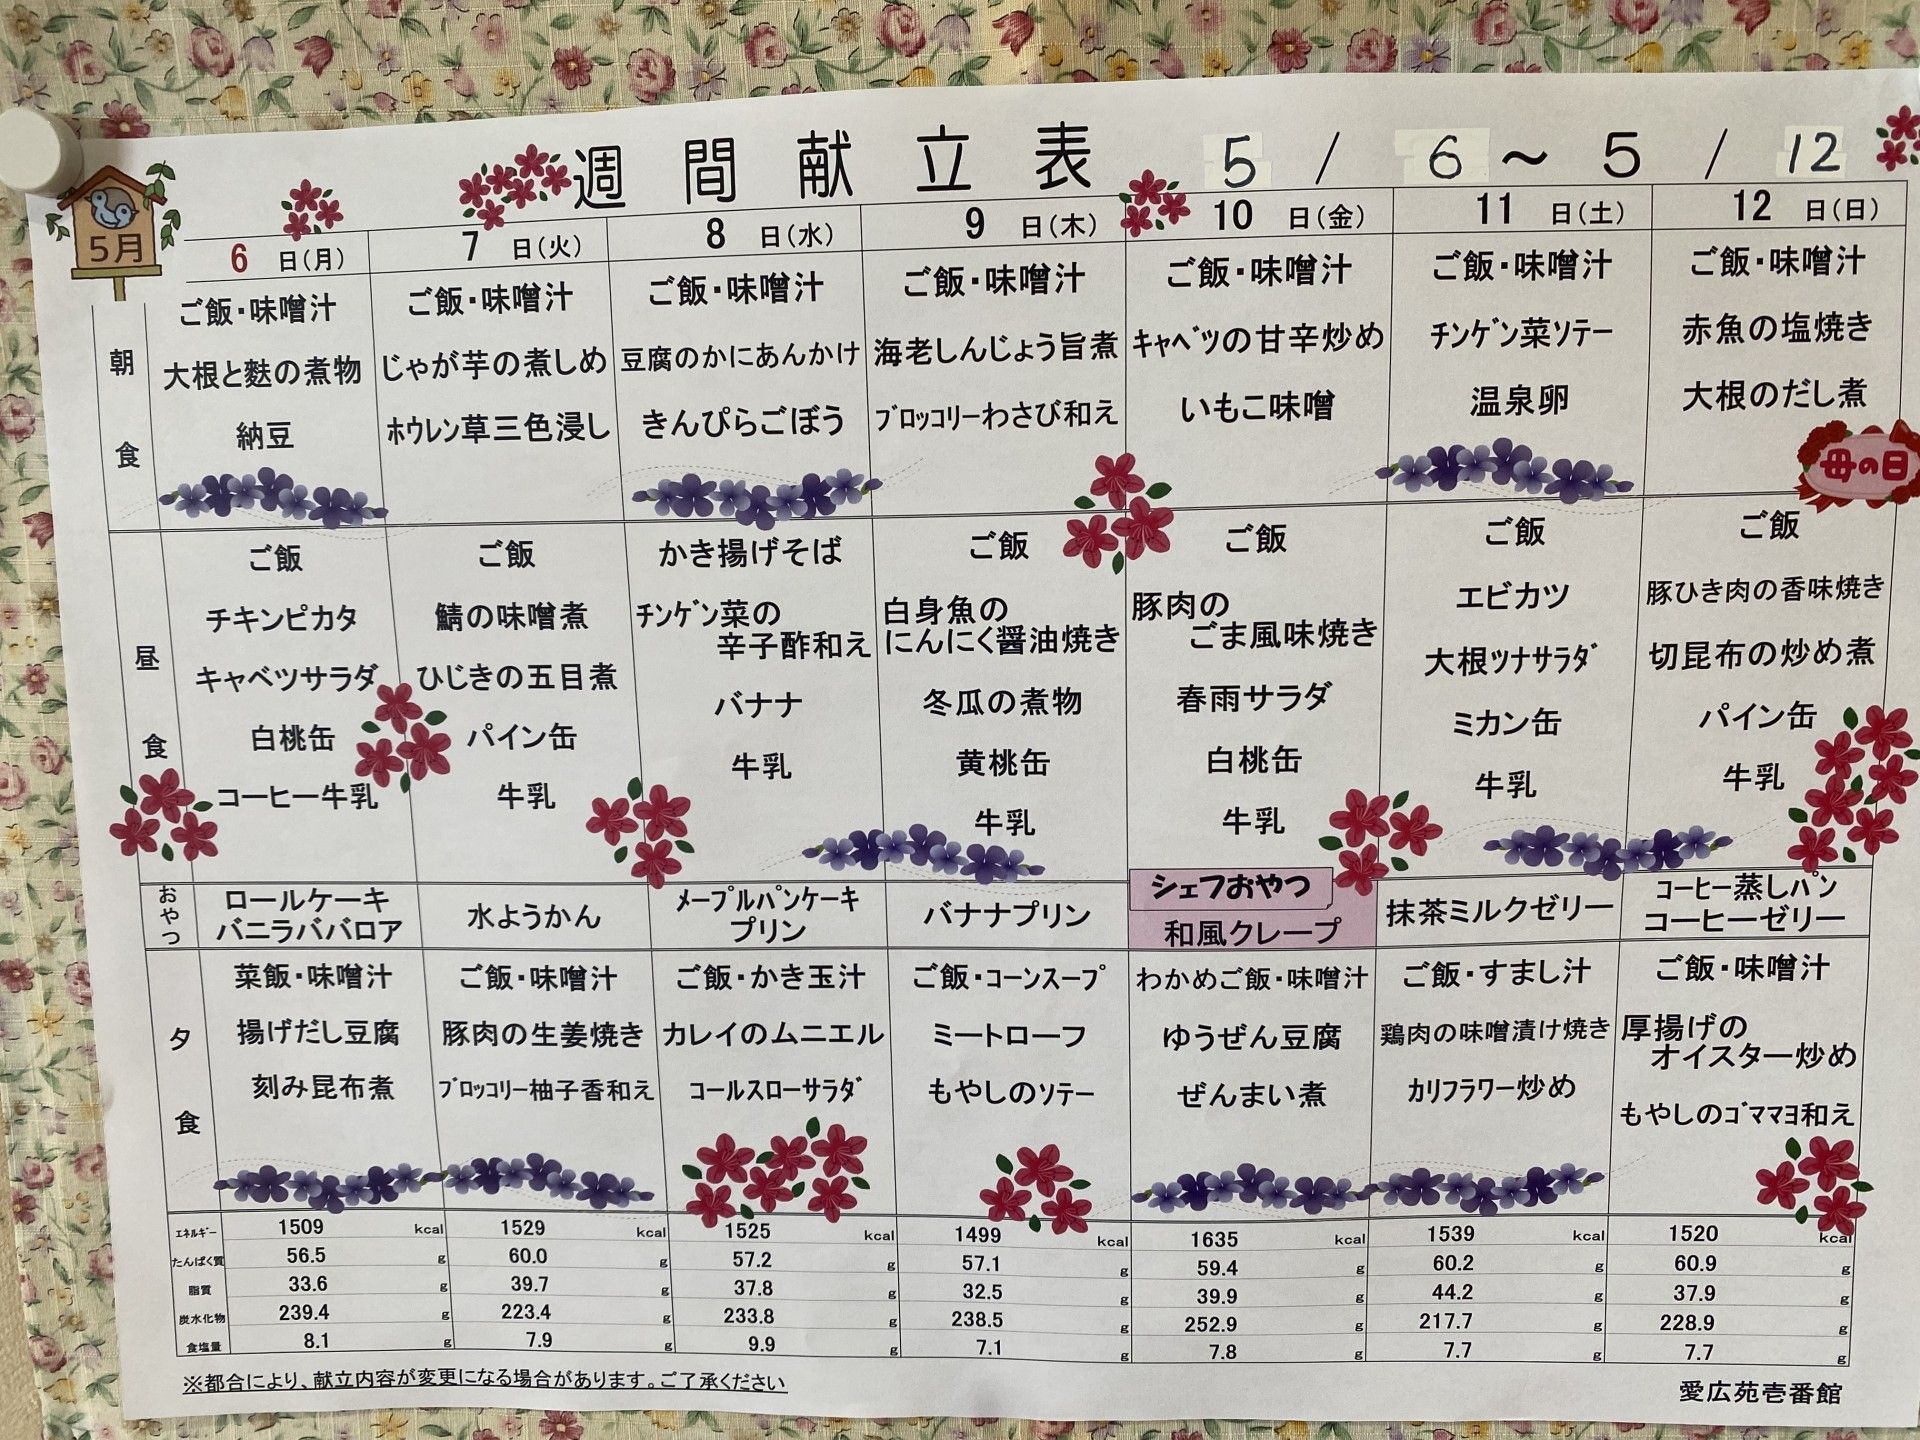 週間献立表 5/6~5/12
5月
6日(月) 7日(火) 8日(水) 9日(木) 10日(金) 11日(土) 12日(日)
朝食
ご飯・味噌汁
大根と麩の煮物
納豆
ご飯・味噌汁
じゃが芋の煮しめ
ホウレン草三色浸し
ご飯・味噌汁
豆腐のかにあんかけ
きんぴらごぼう
ご飯・味噌汁
海老しんじょう旨煮
ブロッコリーわさび和え
ご飯・味噌汁
キャベツの甘辛炒め
いもこ味噌
ご飯・味噌汁
チンゲン菜ソテー
温泉卵
ご飯・味噌汁
赤魚の塩焼き
大根のだし煮
母の日
昼食
ご飯
チキンピカタ
キャベツサラダ
白桃缶
コーヒー牛乳
ご飯
鯖の味噌煮
ひじきの五目煮
パイン缶
牛乳
かき揚げそば
チンゲン菜の
辛子酢和え
バナナ
牛乳
ご飯
白身魚の
にんにく醤油焼き
冬瓜の煮物
黄桃缶
牛乳
ご飯
豚肉の
ごま風味焼き
春雨サラダ
白桃缶
牛乳
ご飯
エビカツ
大根ツナサラダ
ミカン缶
牛乳
ご飯
豚ひき肉の香味焼き
切昆布の炒め煮
パイン缶
牛乳
おやつ
ロールケーキ
バニラババロア
水ようかん
メープルパンケーキ
プリン
バナナプリン
シェフおやつ
和風クレープ
抹茶ミルクゼリー
コーヒー蒸しパン
コーヒーゼリー
夕食
菜飯・味噌汁
揚げだし豆腐
刻み昆布煮
ご飯・味噌汁
豚肉の生姜焼き
ブロッコリー柚子香和え
ご飯・かき玉汁
カレイのムニエル
コールスローサラダ
ご飯・コーンスープ
ミートローフ
もやしのソテー
わかめご飯・味噌汁
ゆうぜん豆腐
ぜんまい煮
ご飯・すまし汁
鶏肉の味噌漬け焼き
カリフラワー炒め
ご飯・味噌汁
厚揚げの
オイスター炒め
もやしのゴママヨ和え
エネルギー 1509 kcal 1529 kcal 1525 kcal 1499 kcal 1635 kcal 1539 kcal 1520 kcal
たんぱく質 56.5 g 60.0 g 57.2 g 57.1 g 59.4 g 60.2 g 60.9 g
脂質 33.6 g 39.7 g 37.8 g 32.5 g 39.9 g 44.2 g 37.9 g
炭水化物 239.4 g 223.4 g 233.8 g 238.5 g 252.9 g 217.7 g 228.9 g
食塩量 8.1 g 7.9 g 9.9 g 7.1 g 7.8 g 7.7 g 7.7 g
※都合により、献立内容が変更になる場合があります。ご了承ください
愛広苑壱番館